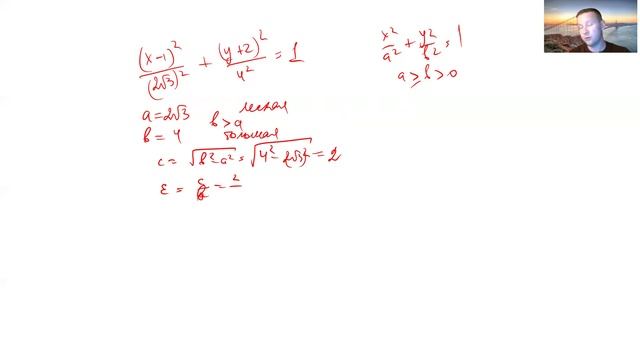 (x-1)²/(2√3)² + (y+2)²/4² = 1
x²/a² + y²/b² = 1
a ≥ b > 0
a = 2√3
b = 4
b > a
большая
c = √(b² - a²) = √(4² - (2√3)²) = 2
ε = c/b = 2/